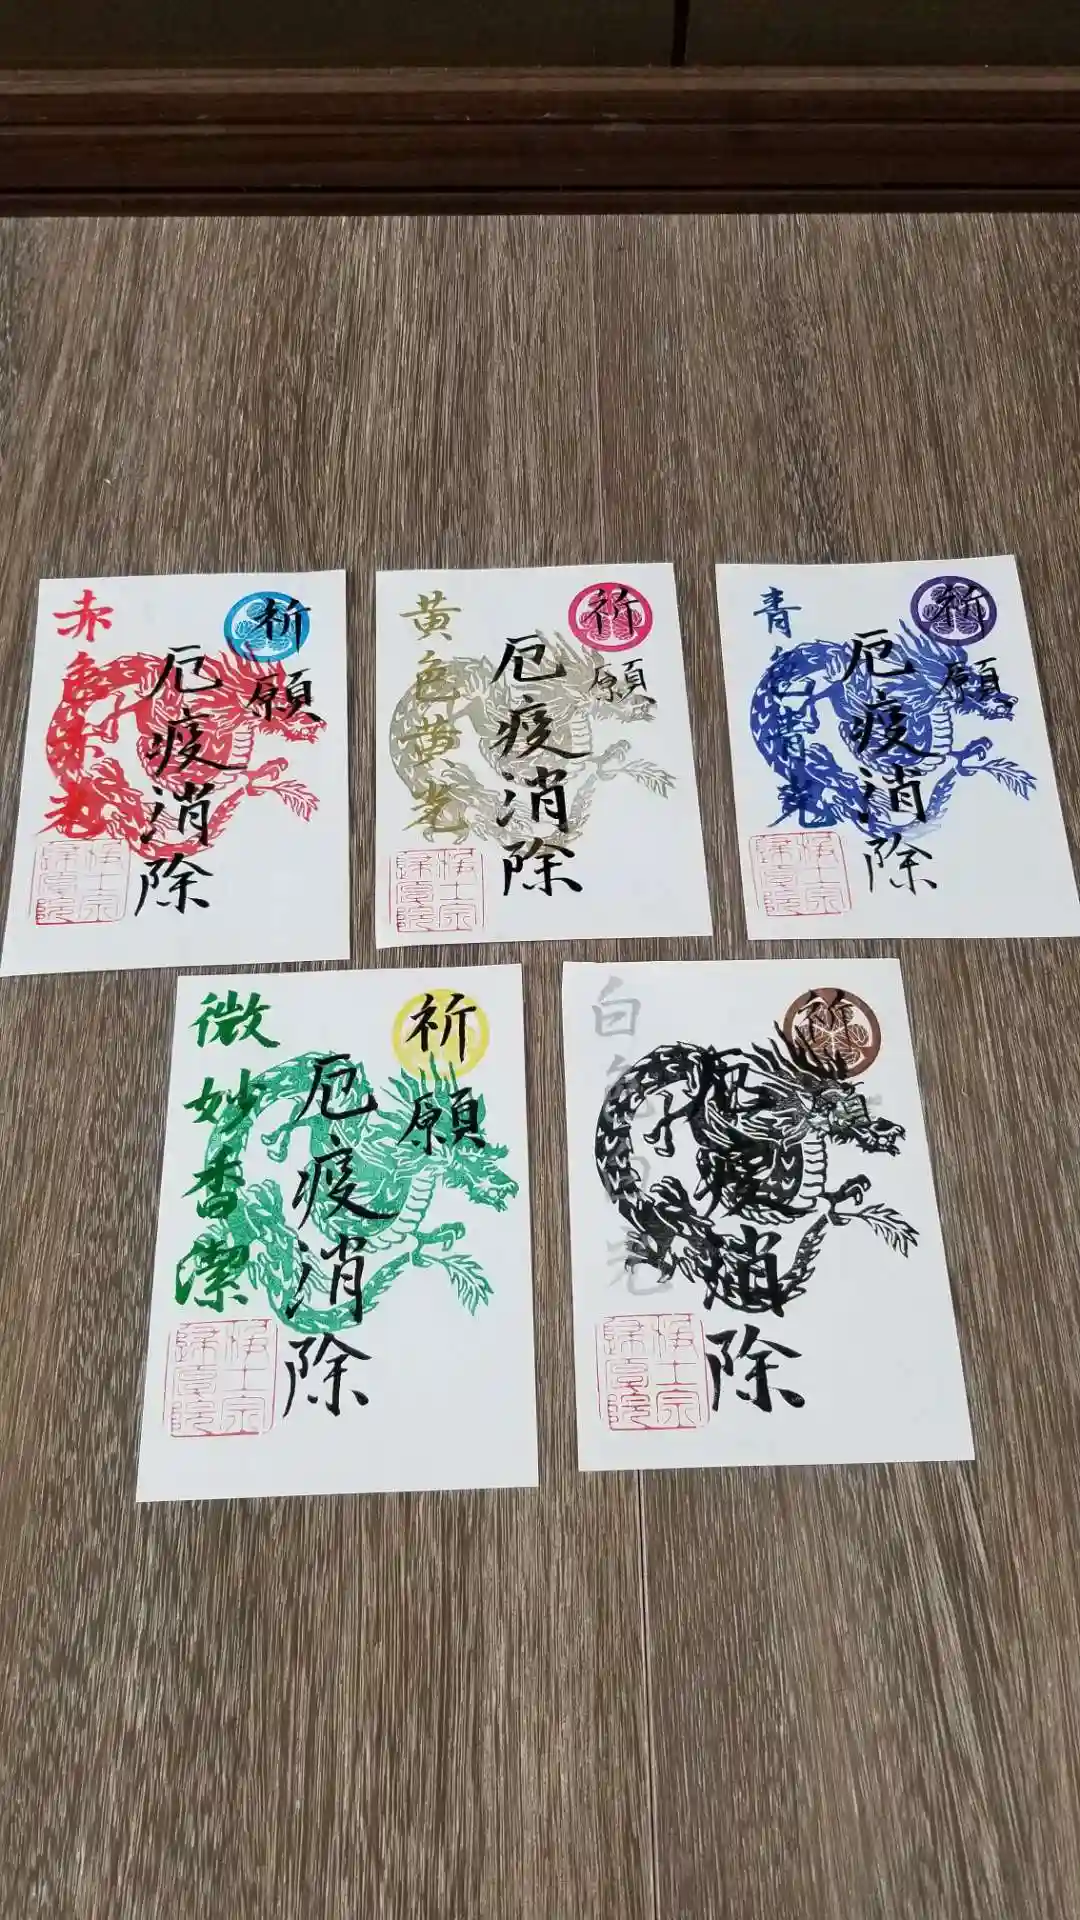 祈願
厄疫消除
赤色赤光
浄土宗
祈願
厄疫消除
黄色黄光
浄土宗
祈願
厄疫消除
青色青光
浄土宗
祈願
厄疫消除
微妙香潔
浄土宗
祈願
厄疫消除
白色白光
浄土宗